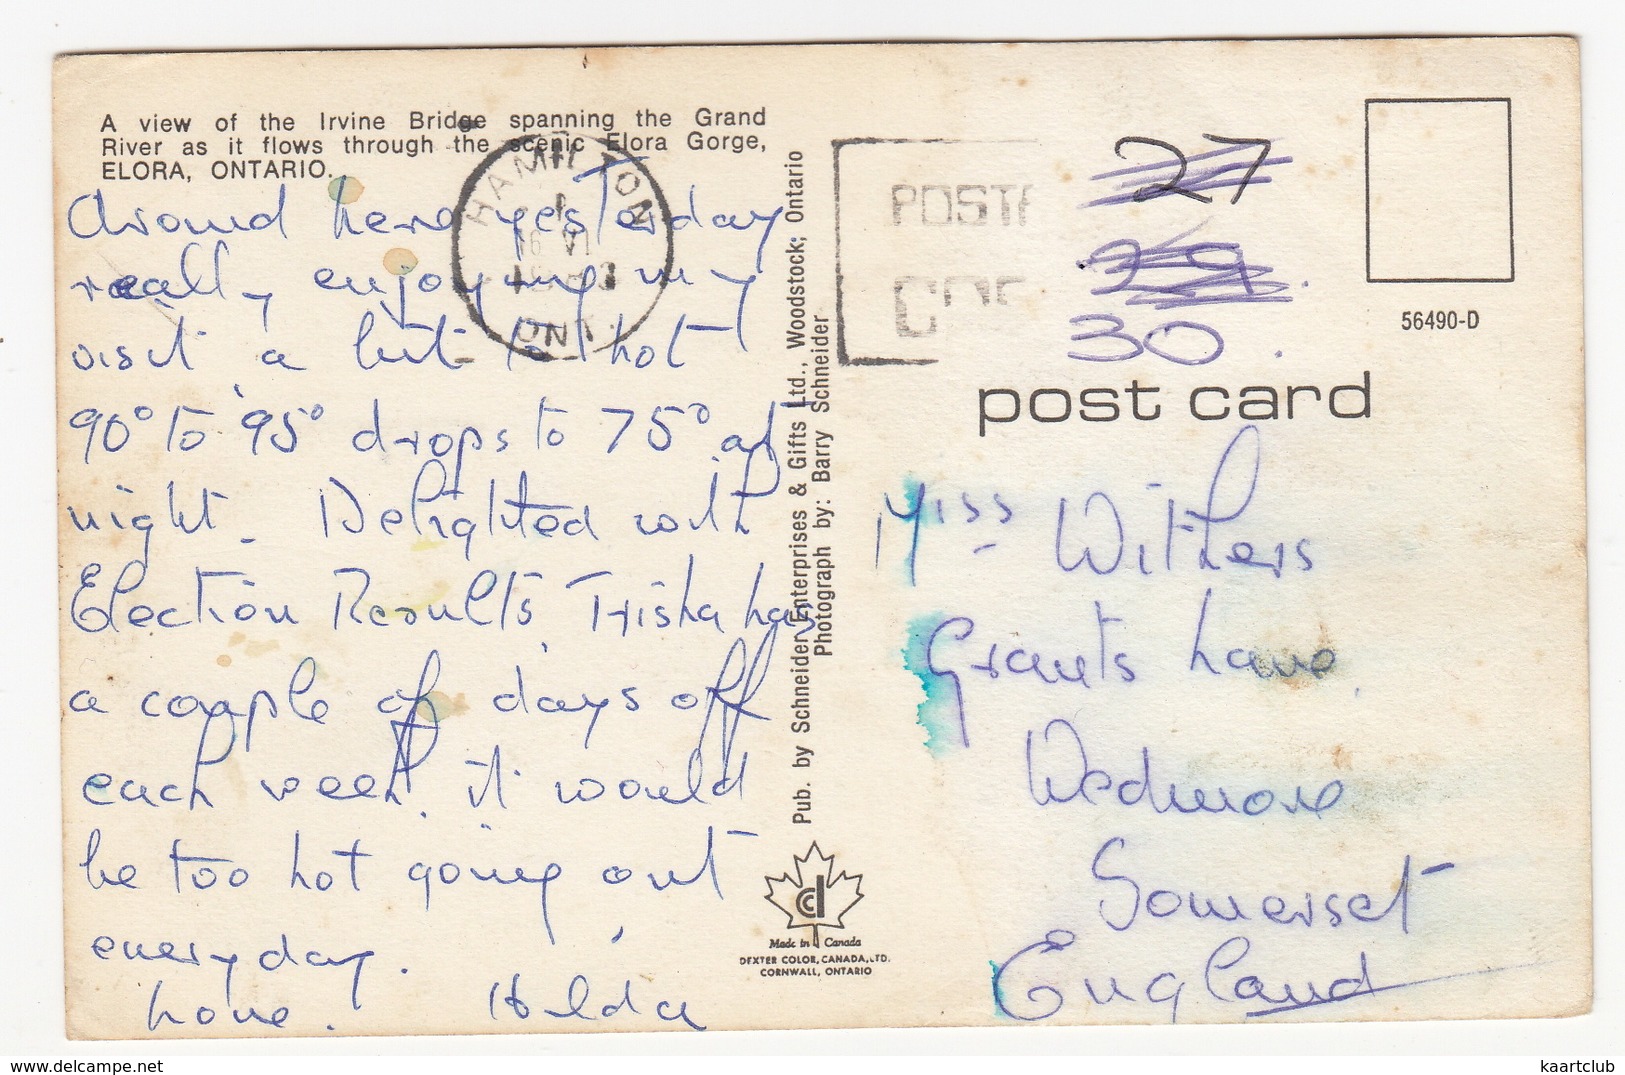 A view of the Irvine Bridge spanning the Grand
River as it flows through the scenic Elora Gorge,
ELORA, ONTARIO.
Around here yesterday
really enjoying my
visit a bit to hot
90° to 95° drops to 75° at
night. Delighted with
Election Results. Trisha has
a couple of days off
each week, it would
be too hot going out
everyday.
Love. Hilda
HAMILTON
ONT.
Pub. by Schneider Enterprises & Gifts Ltd., Woodstock; Ontario
Photograph by: Barry Schneider
Made in Canada
DEXTER COLOR, CANADA, LTD.
CORNWALL, ONTARIO
27
29.
30.
56490-D
post card
Miss Withers
Grants Lane,
Wedmore
Somerset
England
kaartclub